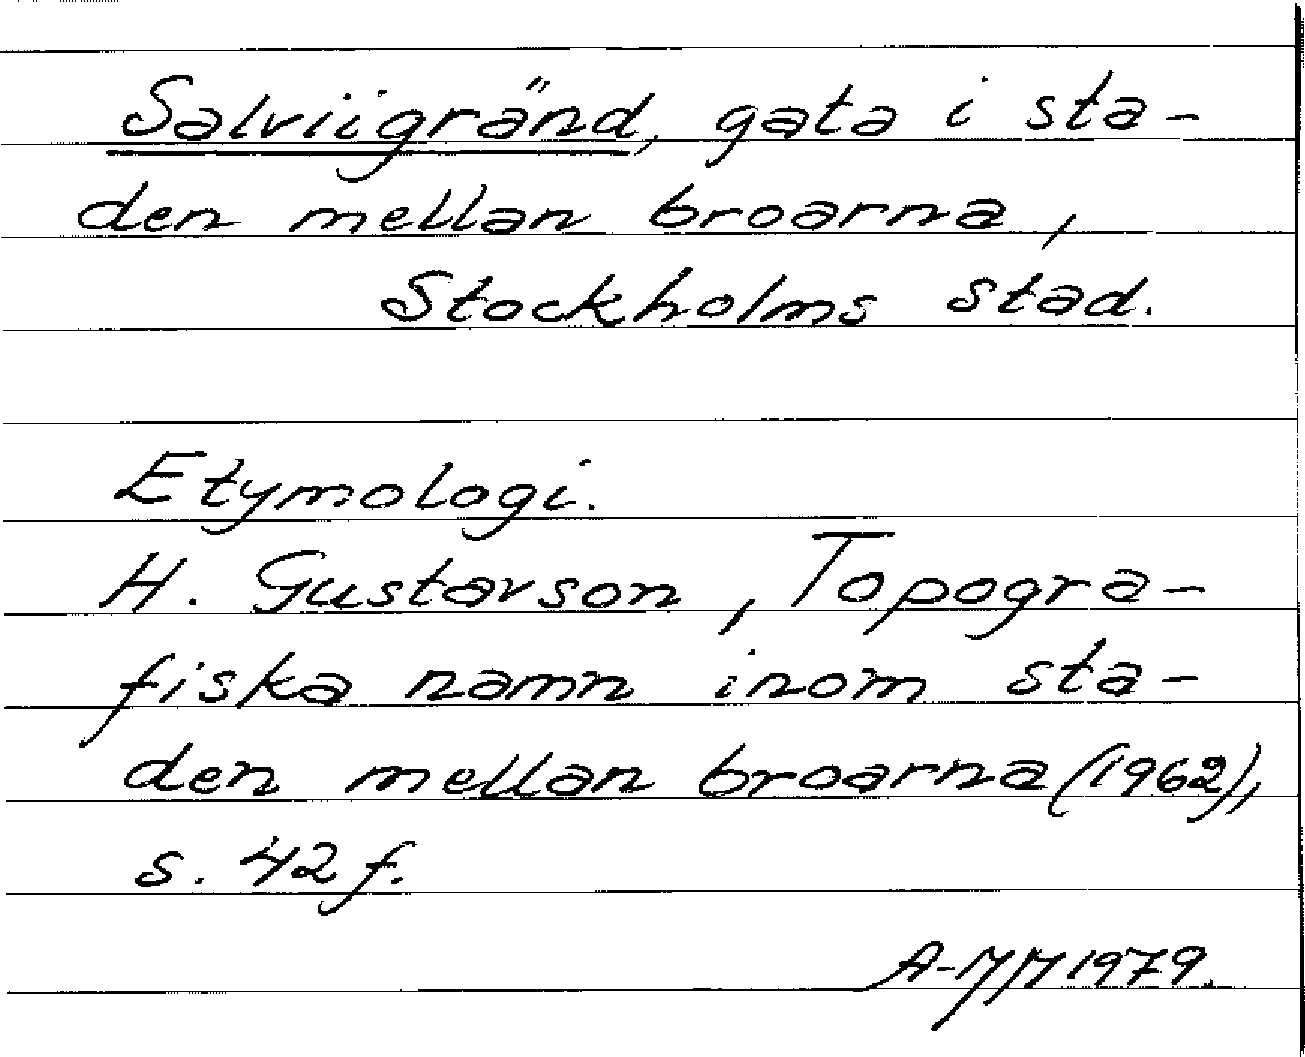 Salviigränd, gata i sta-
den mellan broarna,
Stockholms stad.
Etymologi.
H. Gustavson, Topogra-
fiska namn inom sta-
den mellan broarna (1962),
s. 42 f.
1979.